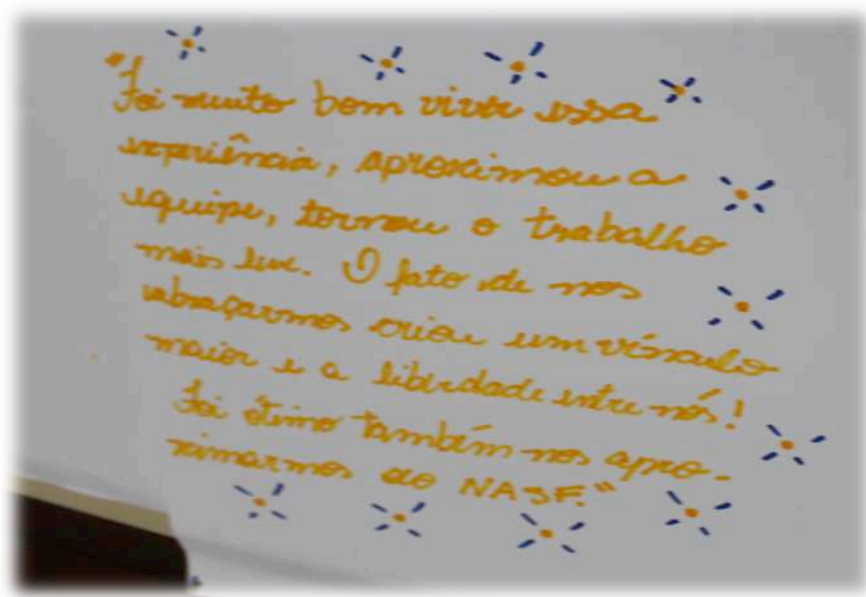 "Foi muito bom viver essa
experiência, aproximou a
equipe, tornou o trabalho
mais leve. O fato de nos
abraçarmos criou um vínculo
maior e a liberdade entre nós!
Foi ótimo também nos apro-
ximarmos ao NASF."